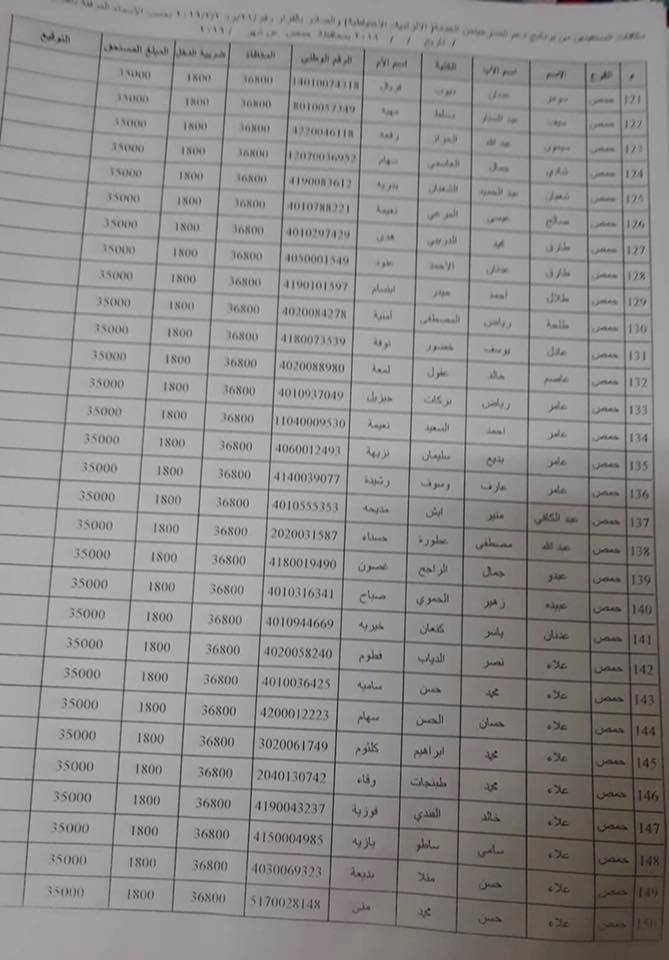 م الفرع الاسم اسم الأب الكنية اسم الأم الرقم الوطني المكافأة ضريبة الدخل المبلغ المستحق التوقيع
121 حمص سومر عدنان ديوب فريال 14010074318 36800 1800 35000
122 حمص سيف عبد الستار سلامة مهية 8010057349 36800 1800 35000
123 حمص سيمون عبد الله الخوري رفقة 4220046118 36800 1800 35000
124 حمص شادي جمال القاسمي سهام 12070036952 36800 1800 35000
125 حمص شعبان عبد الحميد الشعبان بدرية 4190083612 36800 1800 35000
126 حمص صالح عيسى المرعي نعيمة 4010788221 36800 1800 35000
127 حمص طارق محمد الدريبي هدى 4010297429 36800 1800 35000
128 حمص طارق عدنان الأحمد خلود 4050001549 36800 1800 35000
129 حمص طلال أحمد حيدر ابتسام 4190101597 36800 1800 35000
130 حمص طلحة رياض المصطفى أمنية 4020084278 36800 1800 35000
131 حمص عادل يوسف خضور نوفة 4180073539 36800 1800 35000
132 حمص عاصم خالد عقول لمعة 4020088980 36800 1800 35000
133 حمص عامر رياض بركات جيزيل 4010937049 36800 1800 35000
134 حمص عامر احمد السعيد نعيمة 11040009530 36800 1800 35000
135 حمص عامر بديع سليمان نزيهة 4060012493 36800 1800 35000
136 حمص عامر عارف وسوف رشيدة 4140039077 36800 1800 35000
137 حمص عبد الكافي منير ابش مديحه 4010555353 36800 1800 35000
138 حمص عبد الله مصطفى عطورة حسناء 2020031587 36800 1800 35000
139 حمص عبدو جمال الراجح غصون 4180019490 36800 1800 35000
140 حمص عبيده زهير الحموي صباح 4010316341 36800 1800 35000
141 حمص عدنان ياسر كنعان خيريه 4010944669 36800 1800 35000
142 حمص علاء نصر الدياب فطوم 4020058240 36800 1800 35000
143 حمص علاء محمد حسن ساميه 4010036425 36800 1800 35000
144 حمص علاء حسان الحسن سهام 4200012223 36800 1800 35000
145 حمص علاء محمد ابراهيم كلثوم 3020061749 36800 1800 35000
146 حمص علاء محمد طبنجات وفاء 2040130742 36800 1800 35000
147 حمص علاء خالد الفندي فوزية 4190043237 36800 1800 35000
148 حمص علاء سامي ساطو بازيه 4150004985 36800 1800 35000
149 حمص علاء حسن منلا بديعة 4030069323 36800 1800 35000
150 حمص علاء حسن محمد منى 5170028148 36800 1800 35000